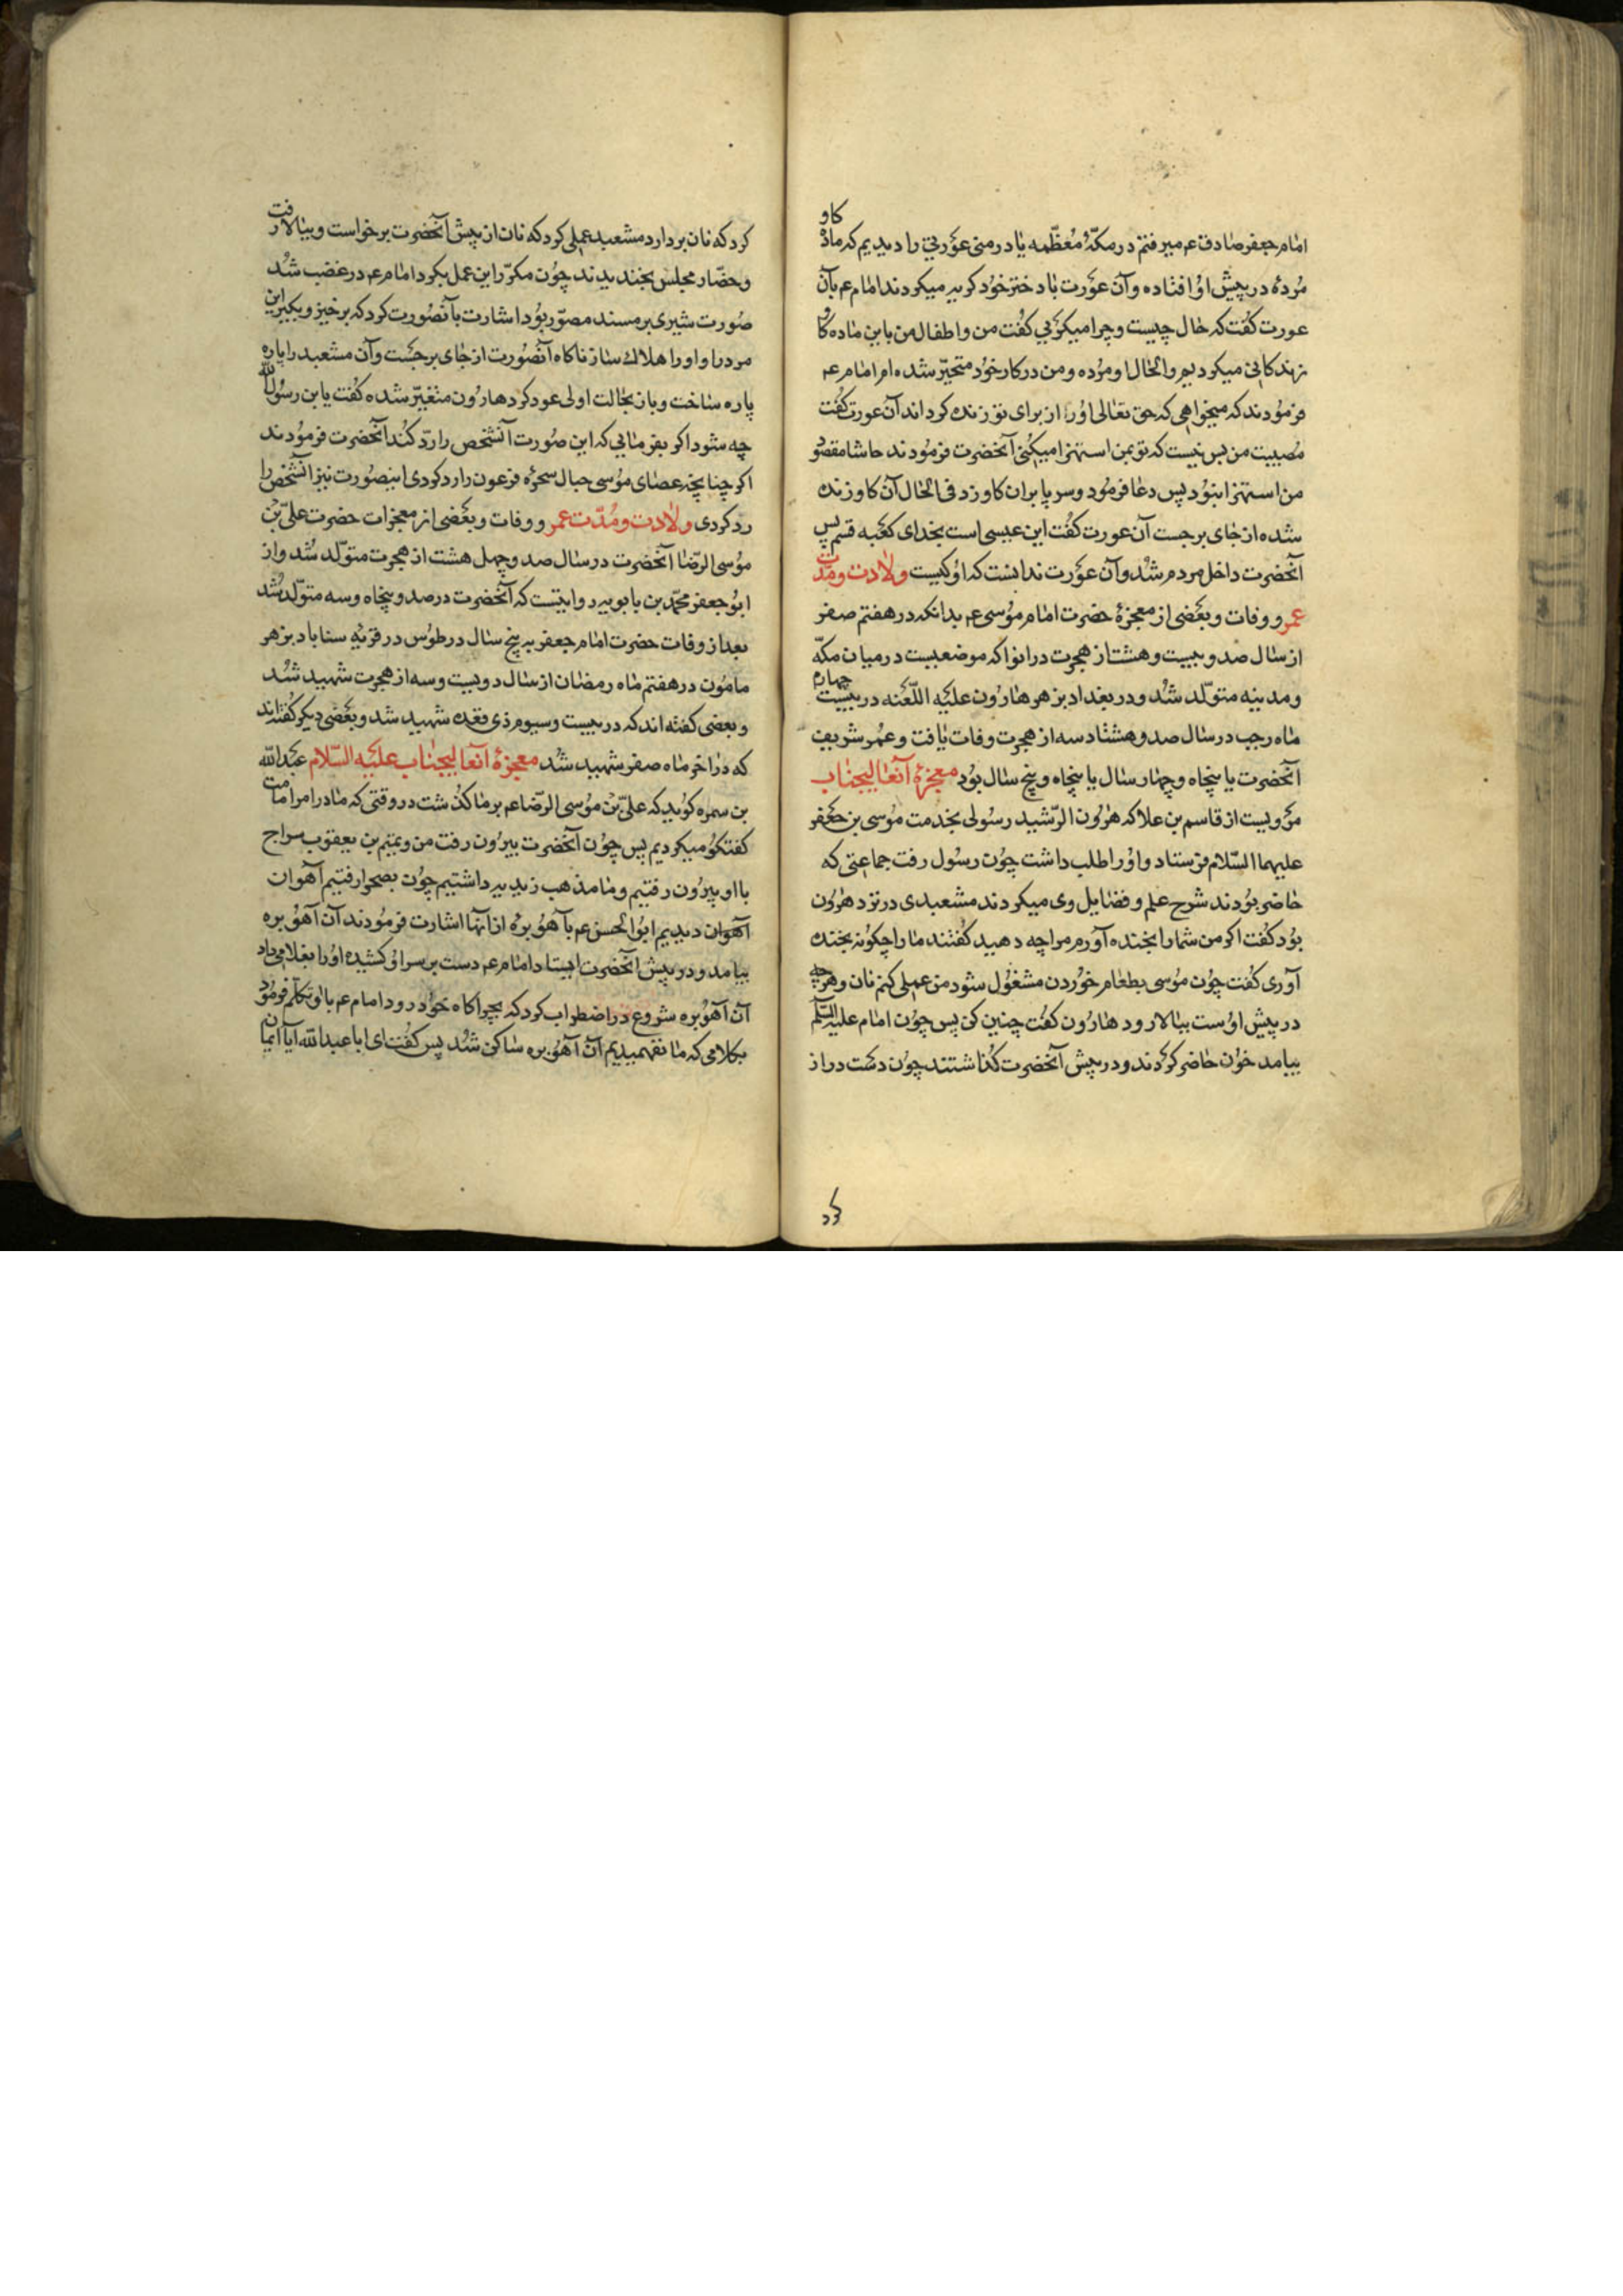 امام جعفر صادق عم میرفتم در مکّهٔ مُعظّمه یا در منی عورتی را دیدیم که ماده کاو
مُردهٔ در پیش اوُ افتاده و آن عورت با دختر خوُد کریه میکردند امام عم بآن
عورت کفت که حال چیست و چرا میکریی کفت من و اطفال من باین ماده کاو
زندکانی میکردیم و الحال او مرُده و من در کار خوُد متحیّر شده ام امام عم
فرموُدند که میخواهی که حق تعالی اوُرا از برای تو زنده کرداند آن عورت کفت
مُصیبت من بس نیست که تو بمن استهزا میکنی آنحضرت فرموُدند حاشا مقصوُد
من استهزا نبوُد پس دعا فرموُد و سر پا بران کاو زد فی الحال آن کاو زنده
شده از جای برجست آن عورت کفت این عیسی است بخدای کعبه قسم پس
آنحضرت داخل مردم شد و آن عورت ندانست که اوُ کیست ولادت و مدّت
عمر و وفات و بعضی از معجزهٔ حضرت امام موُسی عم بدانکه در هفتم صفر
از سال صد و بیست و هشت از هجرت در ابوا که موضعیست در میان مکّه
و مدینه متولّد شد و در بغداد بزهر هاروُن علیه اللّعنه در بیست چهارم
ماه رجب در سال صد و هشتاد سه از هجرت وفات یافت و عمُر شریف
آنحضرت یا پنجاه و چهار سال یا پنجاه و پنج سال بوُد معجزهٔ آنعالیجناب
مرویست از قاسم بن علا که هروُن الرّشید رسُولی بخدمت موُسی بن جعفر
علیهما السّلام فرستاد و اوُرا طلب داشت چوُن رسول رفت جماعتی که
حاضر بوُدند شرح علم و فضایل وی میکردند مشعبدی در نزد هروُن
بوُد کفت اکر من شمارا بخنده آورم مرا چه دهید کفتند مارا چکونه بخنده
آوری کفت چوُن موُسی بطعام خوُردن مشغوُل شود من عملی کنم نان و هر چه
در پیش اوُست ببالا رود هاروُن کفت چنین کن پس چوُن امام علیه السّلم
بیامد خوُن حاضر کردند و در پیش آنحضرت کذاشتند چوُن دست دراز
کرد که نان بردارد مشعبد عملی کرد که نان از پیش آنحضرت برخواست و ببالا رفت
و حضّار مجلس بخندیدند چوُن مکرّر این عمل بکرد امام عم در غضب شد
صوُرت شیری بر مسند مصوّر بوُد اشارت بآنصوُرت کرد که برخیز و بکیر این
مرد را و اورا هلاک ساز ناکاه آنصوُرت از جای برجست و آن مشعبد را پاره
پاره ساخت و باز بحالت اولی عود کرد هاروُن متغیّر شده کفت یا بن رسوُل الله
چه شود اکر بفرمایی که این صوُرت آنشخص را ردّ کند آنحضرت فرموُدند
اکر چنانچه عصای موُسی حبال سحرهٔ فرعون را رد کردی اینصوُرت نیز آنشخص را
رد کردی ولادت و مُدّت عمر و وفات و بعضی از معجزات حضرت علیّ بن
موُسی الرّضا آنحضرت در سال صد و چهل هشت از هجرت متولّد شد و از
ابوُ جعفر محمّد بن بابویه روایتست که آنحضرت در صد و پنجاه و سه متولّد شد
بعد از وفات حضرت امام جعفر به پنج سال در طوُس در قریهٔ سناباد بزهر
ماموُن در هفتم ماه رمضان از سال دویست و سه از هجرت شهید شد
و بعضی کفته اند که در بیست و سیوم ذی قعده شهید شد و بعضی دیکر کفته اند
که در اخر ماه صفر شهید شد معجزهٔ آنعالیجناب علیه السّلام عبدالله
بن سمره کوید که علیّ بن موُسی الرّضا عم بر ما کذشت در وقتی که ما در امر امامت
کفتکوُ میکردیم پس چوُن آنحضرت بیروُن رفت من و تمیم بن یعقوب سراج
با او بیروُن رفتیم و ما مذهب زیدیه داشتیم چوُن بصحرا رفتیم آهوان
آهوان دیدیم ابوُ الحسن عم بآهوُ برهٔ از آنها اشارت فرموُدند آن آهوُ بره
بیامد و در پیش آنحضرت ایستاد امام عم دست بر سر اوُ کشیده اوُرا بغلامی داد
آن آهوُ بره شروع در اضطراب کرد که بچراکاه خوُد رود امام عم با اوُ تکلّم فرموُد
بکلامی که ما نفهمیدیم آن آهوُ بره ساکن شد پس کفت ای ابا عبدالله آیا ایمان
کرد